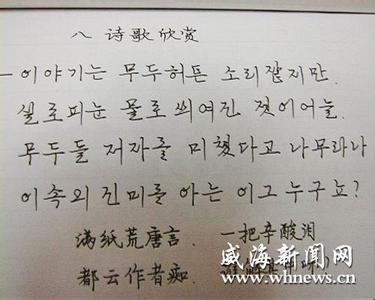 八 诗歌欣赏
一이야기는 무두허튼 소리잘지만.
실로피눈 물로 씌여진 젓이어늘
무두들 저자를 미쳤다고 나무라나
이속의 진미를 아는 이그 누구뇨?
满纸荒唐言. 一把辛酸泪
威海新闻网
都云作者痴.
www.whnews.cn